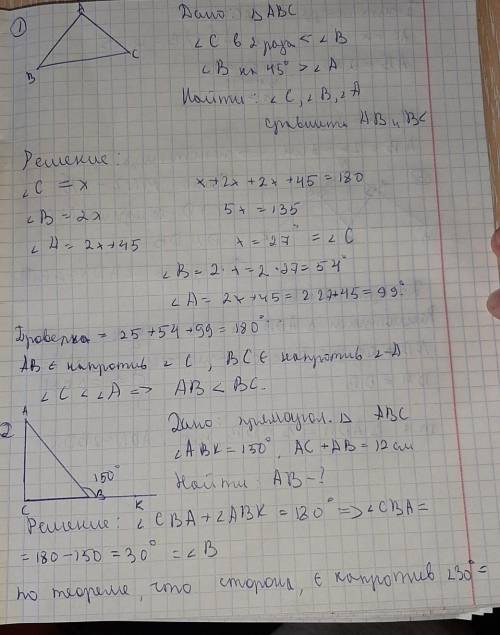 1
A
B
C
Дано: Δ ABC
∠C в 2 раза < ∠B
∠B на 45° > ∠A
Найти: ∠C, ∠B, ∠A
сравнить AB и BC
Решение:
∠C = x
∠B = 2x
∠A = 2x+45
x+2x+2x+45=180
5x=135
x=27° = ∠C
∠B = 2·x = 2·27 = 54°
∠A = 2x+45 = 2·27+45 = 99°
Проверка = 25+54+99=180°
AB ∈ напротив ∠C, BC ∈ напротив ∠A
∠C < ∠A => AB < BC.
2
A
150°
C
B
K
Дано прямоугол. Δ ABC
∠ABK=150°, AC+AB=12см
Найти: AB-?
Решение: ∠CBA+∠ABK=180° => ∠CBA=
=180-150=30° = ∠B
по теореме, что сторона, ∈ напротив ∠30°=